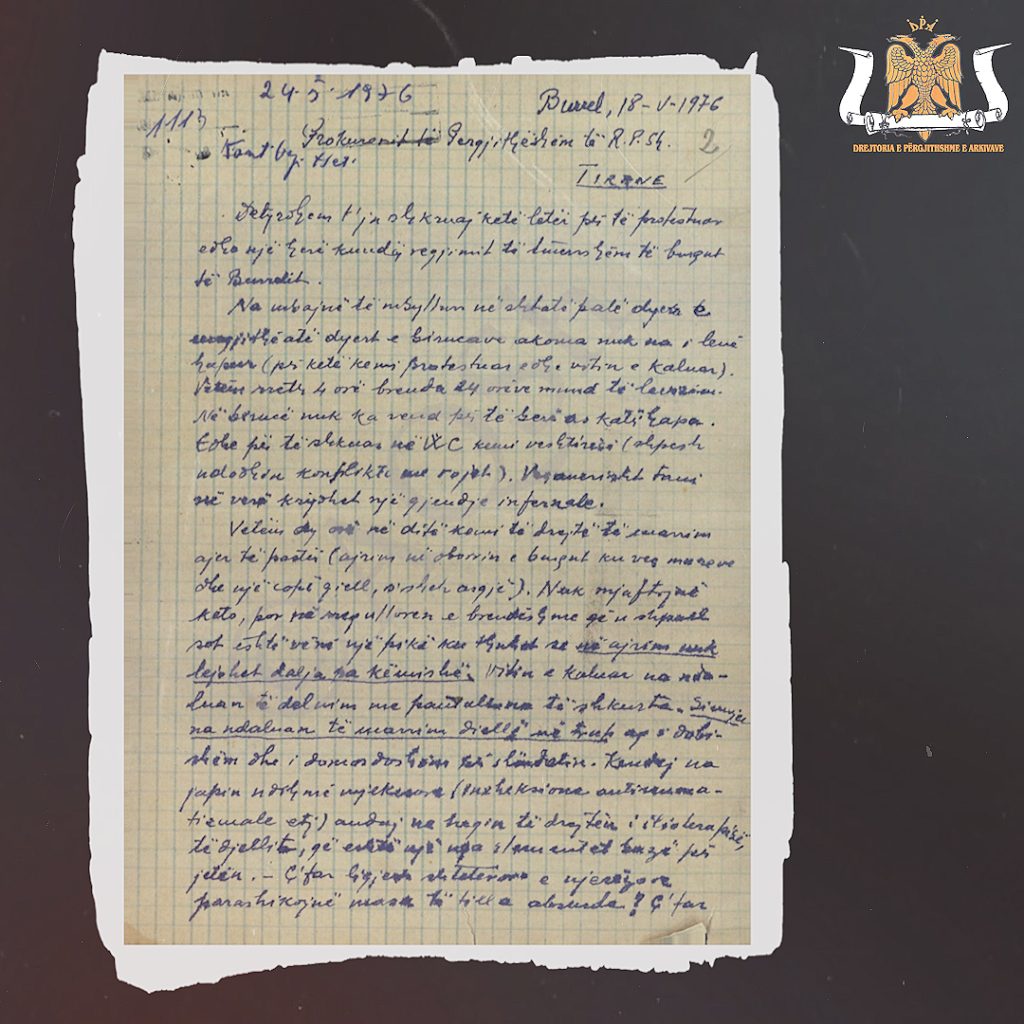 24.5.1976
Burrel, 18-V-1976
1113
Prokurorit të Përgjithëshëm të R.P.Sh. 2
TIRANE
Detyrohem t'ju shkruaj këtë letër për të protestuar
edhe një herë kundëj regjimit të tmerrshëm të burgut
të Burrelit.
Na mbajnë të mbyllun në shtatë palë dyer e
megjithëatë dyert e birucave akoma nuk na i lenë
hapur (për këtë kemi protestuar edhe vitin e kaluar).
Vetëm rreth 4 orë brenda 24 orëve mund të levizim.
Në birucë nuk ka vend për të berë as katër hapa.
Edhe për të shkuar në WC kemi veshtirësi (shpesh
ndodhin konflikte me rojet). Veçanerisht tani
në verë krijohet një gjendje infernale.
Vetëm dy orë në ditë kemi të drejtë të marrim
ajer të pastër (ajrim në oborrin e burgut ku veç mureve
dhe një copë qiell, s'sheh asgjë). Nuk mjaftojnë
këto, por në rregulloren e brendëshme që u shpall
sot është vënë një pikë ku thuhet se në ajrim nuk
lejohet dalja pa këmishë. Vitin e kaluar na nda-
luan të delnim me pantallona të shkurta. Simjet
na ndaluan të marrim diell në trup aq i dobi-
shëm dhe i domosdoshëm për shëndetin. Kendej na
japin ndihmë mjeksore (inxheksione antireuma-
tizmale etj) andej na heqin të drejtën i
të diellit, që është një nga elementet bazë për
jetën. - Ç'far ligjesh shtetërore e njerëzore
parashikojnë masa të tilla absurde? Ç'far
DPA
DREJTORIA E PËRGJITHSHME E ARKIVAVE